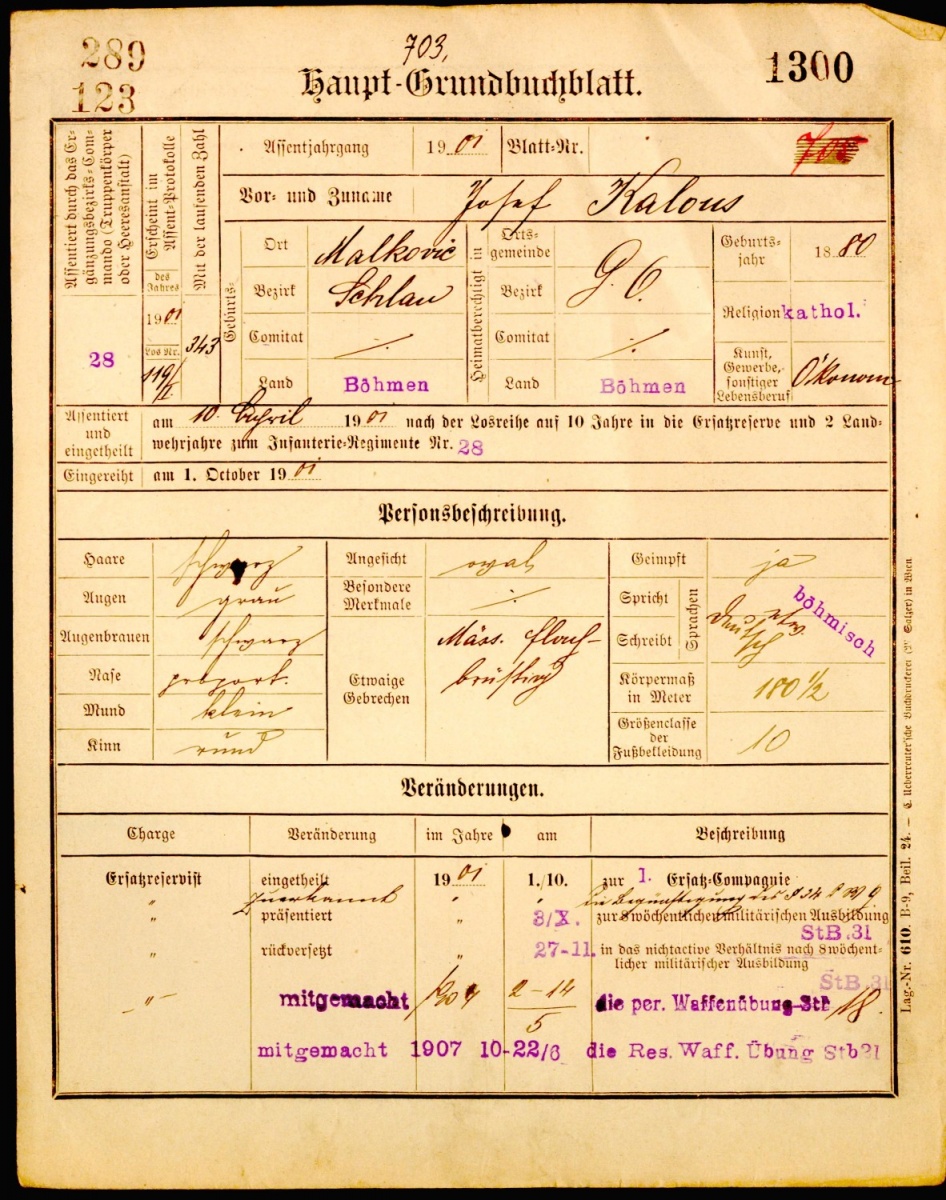 289
123
703,
1300
Haupt-Grundbuchblatt.
Assentiert durch das Ergänzungsbezirks-Commando (Truppenkörper oder Heeresanstalt)
28
Erscheint im Assent-Protokolle
des Jahres
1901
Los Nr.
119/I.
Mit der laufenden Zahl
343
Assentjahrgang 1901 Blatt-Nr.
Vor- und Zuname Josef Kalous
Geburts-
Ort Malkovic
Bezirk Schlan
Comitat ./.
Land Böhmen
Heimatberechtigt in
Ortsgemeinde
Bezirk G. O.
Comitat ./.
Land Böhmen
Geburtsjahr 1880
Religion kathol.
Kunst, Gewerbe, sonstiger Lebensberuf Ökonom
Assentiert und eingetheilt
am 10. April 1901 nach der Losreihe auf 10 Jahre in die Ersatzreserve und 2 Land-
wehrjahre zum Infanterie-Regimente Nr. 28
Eingereiht am 1. October 1901
Personsbeschreibung.
Haare schwarz
Augen grau
Augenbrauen schwarz
Nase proport.
Mund klein
Kinn rund
Angesicht oval
Besondere Merkmale ./.
Etwaige Gebrechen Mäss. flach-
brüstig
Geimpft ja
Spricht
Schreibt
Sprachen
böhmisch
etw.
deutsch
Körpermaß in Meter 180 1/2
Größenclasse der Fußbekleidung 10
Veränderungen.
Charge Veränderung im Jahre am Beschreibung
Ersatzreservist eingetheilt 1901 1./10. zur 1. Ersatz-Compagnie
" Zuerkannt " " die Begünstigung des § 34
" präsentiert " 3/X. zur 8 wöchentlichen militärischen Ausbildung
StB.31
" rückversetzt " 27-11. in das nichtactive Verhältnis nach 8 wöchent-
licher militärischer Ausbildung
StB.31
" mitgemacht 1904 2-14/5 die per. Waffenübung StB 18.
mitgemacht 1907 10-22/6 die Res. Waff. Übung Stb31
Lag.-Nr. 610. B-9, Beil. 24. — C. Ueberreuter'sche Buchdruckerei (M. Salzer) in Wien